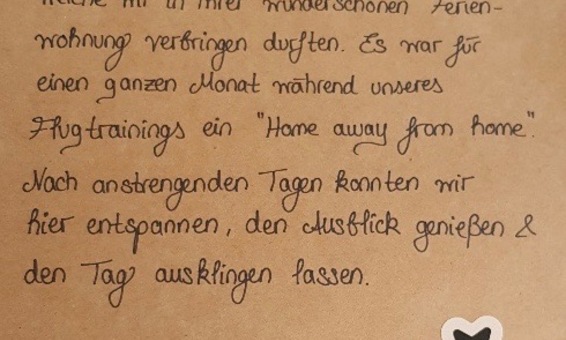 welche wir in Ihrer wunderschönen Ferien-
wohnung verbringen durften. Es war für
einen ganzen Monat während unseres
Flugtrainings ein "Home away from home".
Nach anstrengenden Tagen konnten wir
hier entspannen, den Ausblick genießen &
den Tag ausklingen lassen.